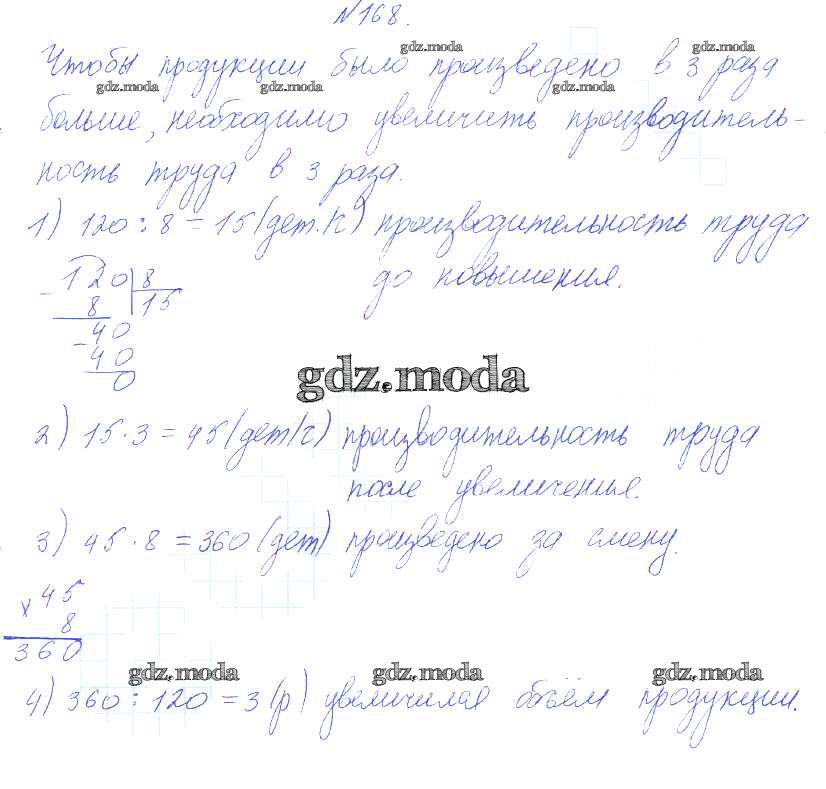 №168.
gdz.moda gdz.moda
Чтобы продукции было произведено в 3 раза
gdz.moda gdz.moda gdz.moda
больше, необходимо увеличить производитель-
ность труда в 3 раза.
1) 120 : 8 = 15 (дет. К) производительность труда
до повышения.
- 120 | 8
8 | 15
- 40
40
0
gdz.moda
2) 15 · 3 = 45 (дет/ч) производительность труда
после увеличенья.
3) 45 · 8 = 360 (дет) произведено за смену.
× 45
8
360
gdz.moda gdz.moda gdz.moda
4) 360 : 120 = 3 (р) увеличился объём продукции.